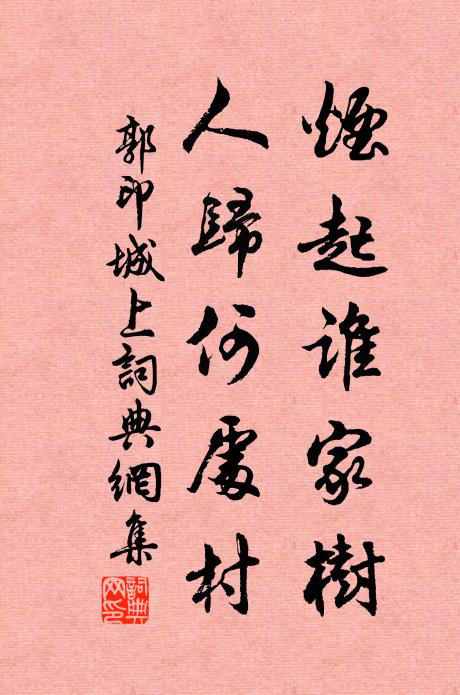 煙起誰家樹
人歸何處村
郭印城上詞典網集
詞典網印